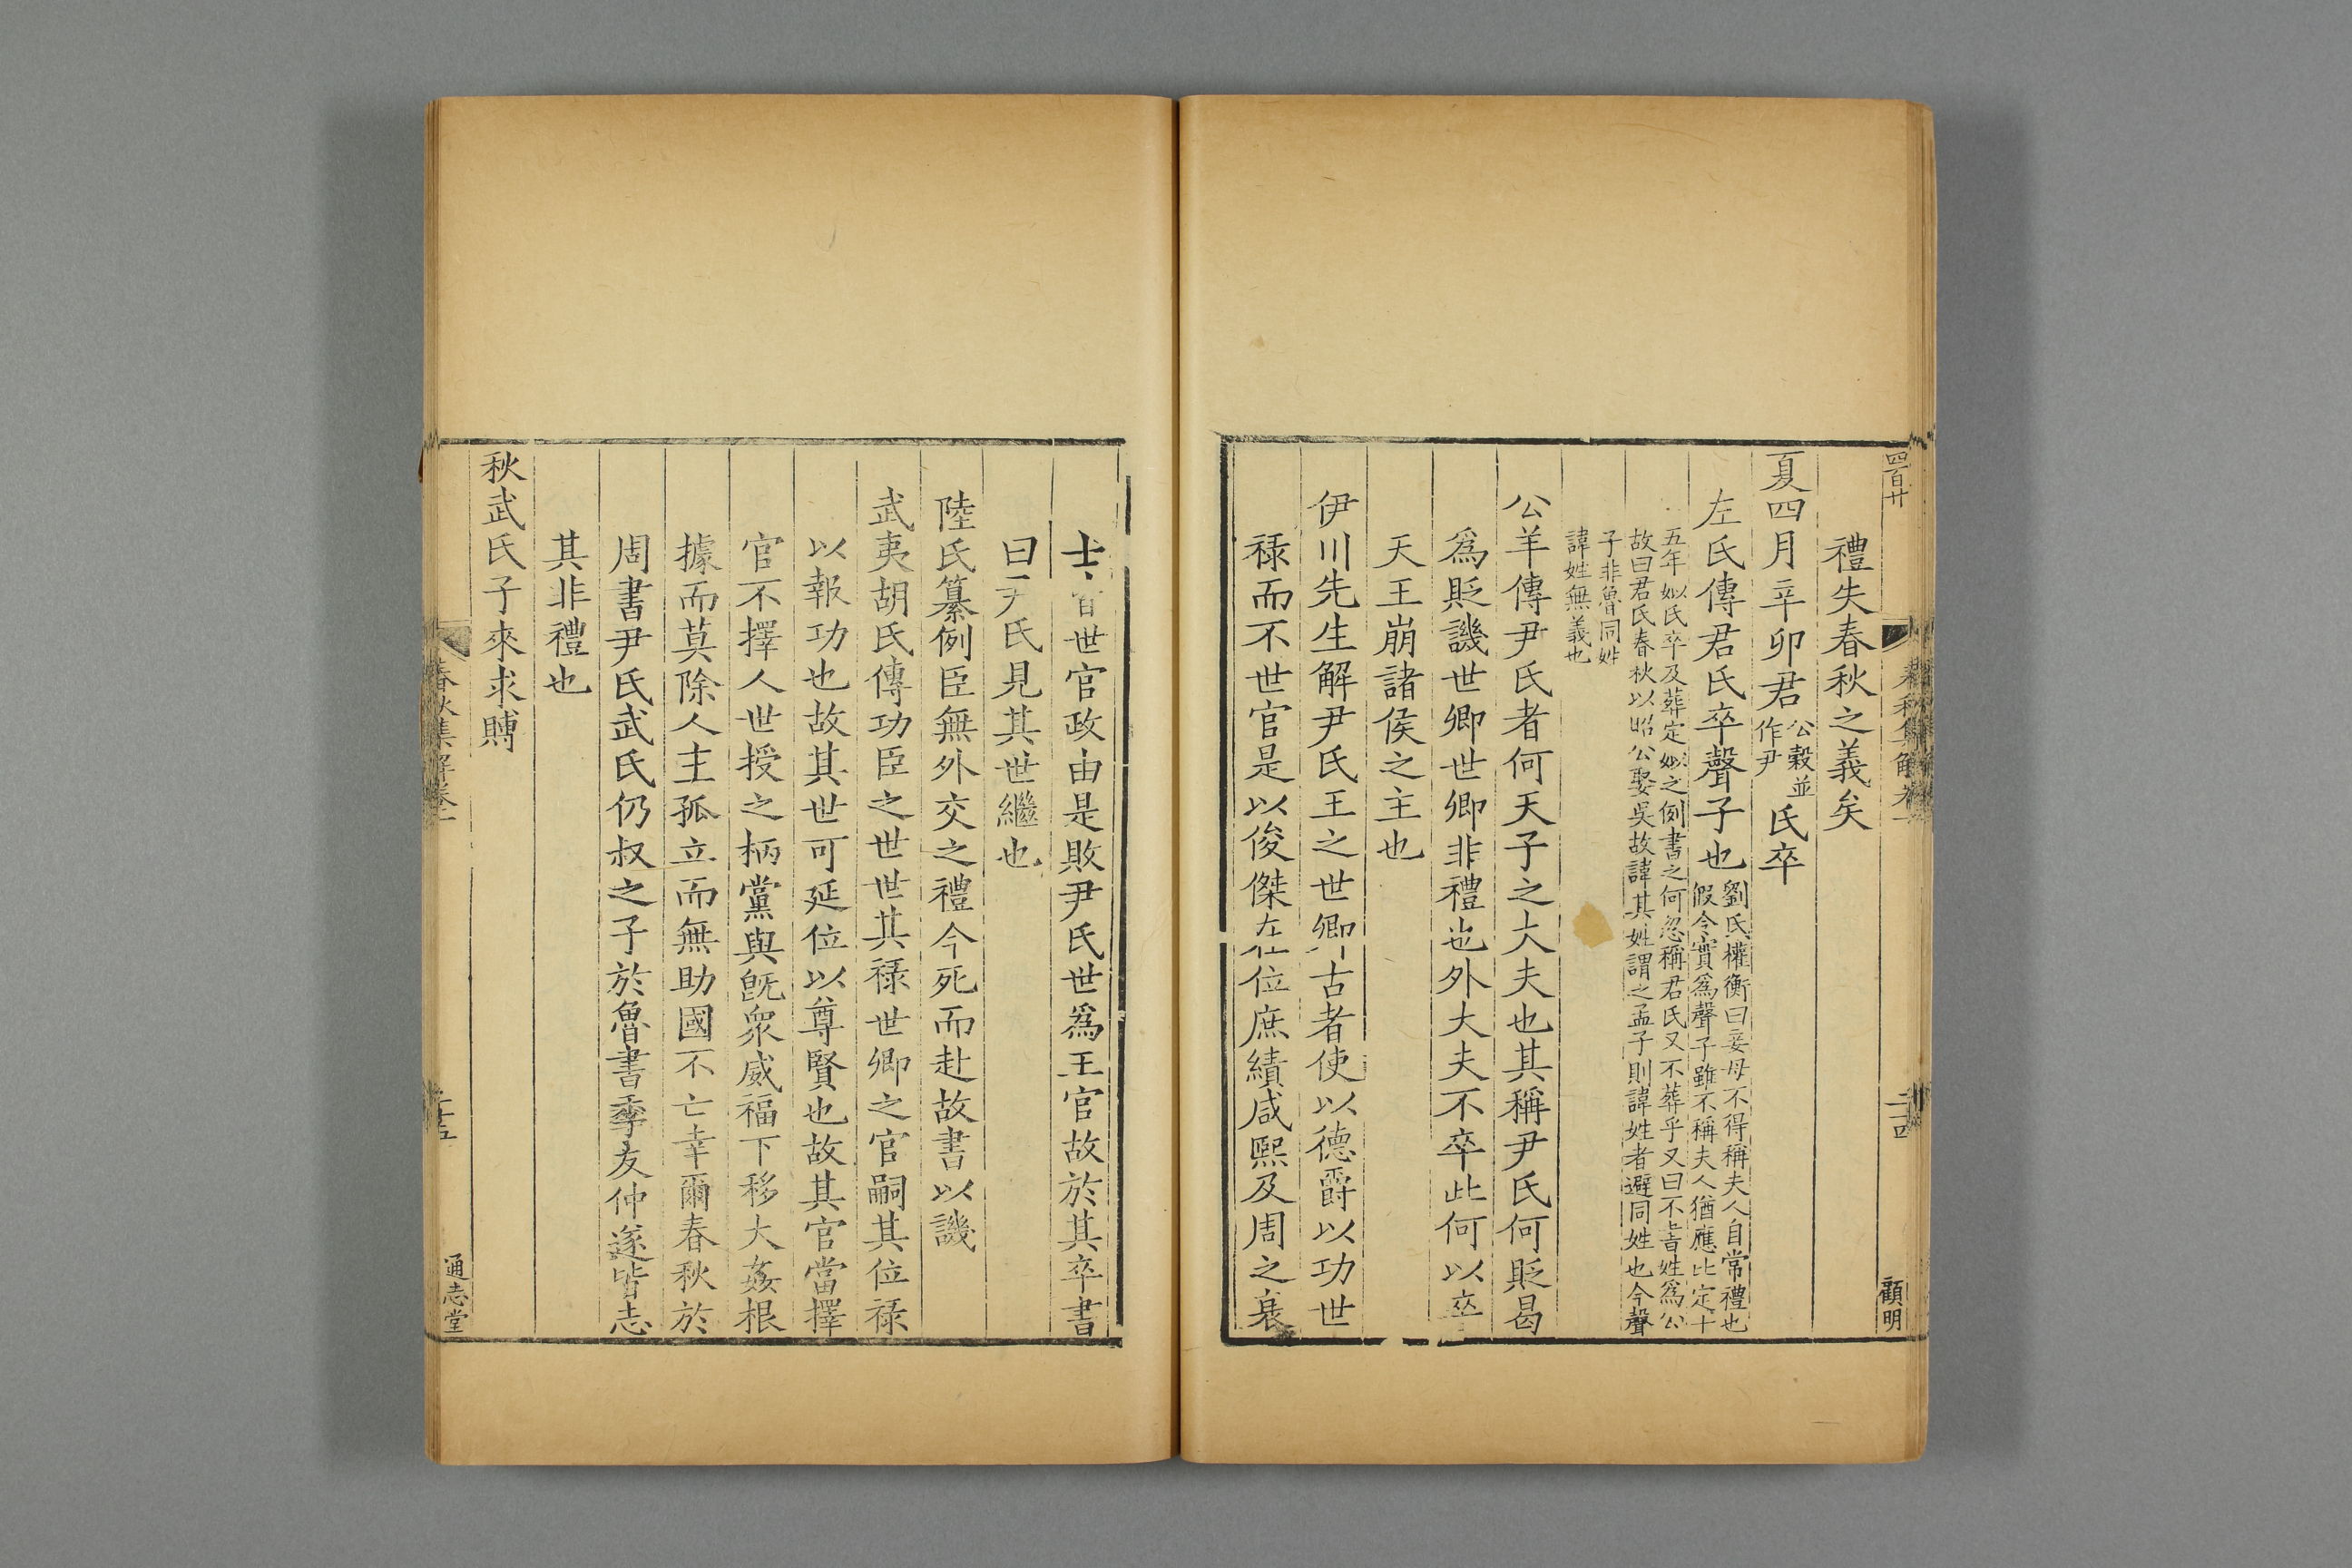 四百廿
春秋集解卷一
二十四
顧明
禮失春秋之義矣
夏四月辛卯君
公榖並
作尹
氏卒
左氏傳君氏卒聲子也
劉氏權衡曰妾母不得稱夫人自常禮也
假令實爲聲子雖不稱夫人猶應比定十
五年姒氏卒及葬定姒之例書之何忽稱君氏又不葬乎又曰不書姓爲公
故曰君氏春秋以昭公娶吳故諱其姓謂之孟子則諱姓者避同姓也今聲
子非魯同姓
諱姓無義也
公羊傳尹氏者何天子之大夫也其稱尹氏何貶曷
爲貶譏世卿世卿非禮也外大夫不卒此何以卒
天王崩諸侯之主也
伊川先生解尹氏王之世卿古者使以德爵以功世
祿而不世官是以俊傑在位庶績咸熙及周之衰
士皆世官政由是敗尹氏世爲王官故於其卒書
曰尹氏見其世繼也
陸氏纂例臣無外交之禮今死而赴故書以譏
武夷胡氏傳功臣之世世其祿世卿之官嗣其位祿
以報功也故其世可延位以尊賢也故其官當擇
官不擇人世授之柄黨與旣衆威福下移大姦根
據而莫除人主孤立而無助國不亡幸爾春秋於
周書尹氏武氏仍叔之子於魯書季友仲遂皆志
其非禮也
秋武氏子來求賻
春秋集解卷一
二十五
通志堂